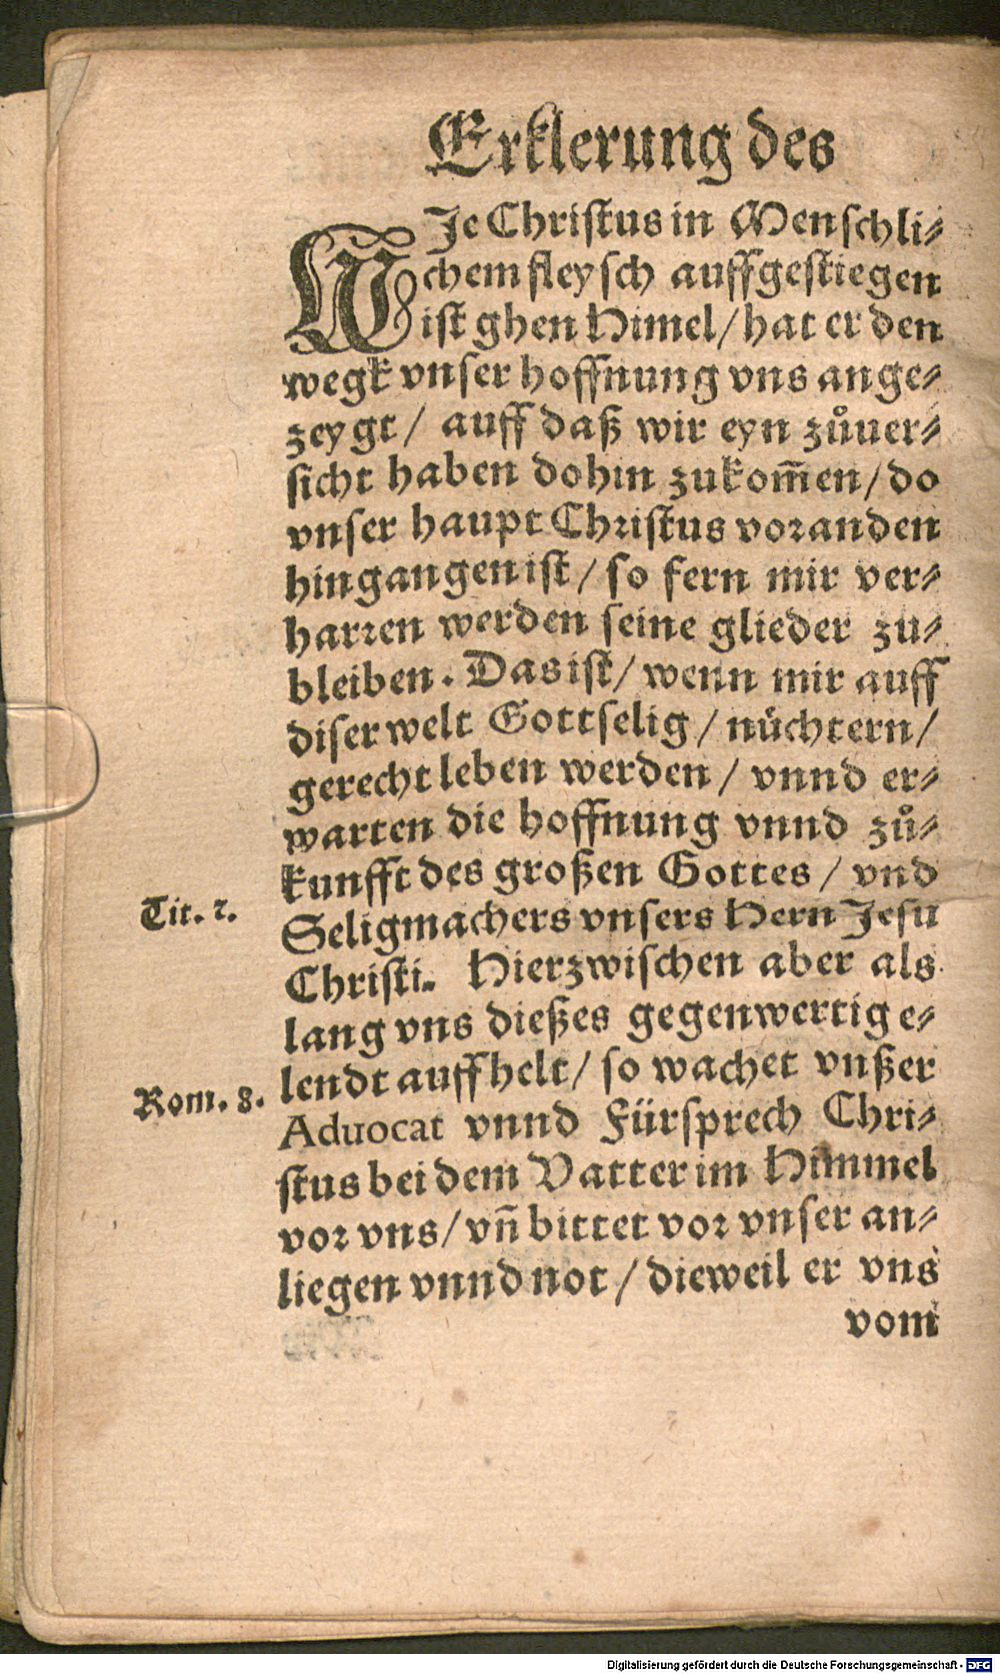 Erklerung des
WJe Christus in Menschli⸗
chem fleysch auffgestiegen
ist ghen Himel/ hat er den
wegk vnser hoffnung vns ange⸗
zeygt/ auff daß wir eyn zůuer⸗
sicht haben dohin zukom̄en/ do
vnser haupt Christus voranden
hingangen ist/ so fern mir ver⸗
harren werden seine glieder zu⸗
bleiben. Das ist/ wenn mir auff
diser welt Gottselig/ nüchtern/
gerecht leben werden/ vnnd er⸗
warten die hoffnung vnnd zů⸗
kunfft des großen Gottes/ vnd
Tit. 2.
Seligmachers vnsers Hern Jesu
Christi. Hierzwischen aber als
lang vns dießes gegenwertig e⸗
lendt auffhelt/ so wachet vnßer
Rom. 8.
Aduocat vnnd Fürsprech Chri⸗
stus bei dem Vatter im Himmel
vor vns/ vn̄ bittet vor vnser an⸗
liegen vnnd not/ dieweil er vns
vom
Digitalisierung gefördert durch die Deutsche Forschungsgemeinschaft - DFG